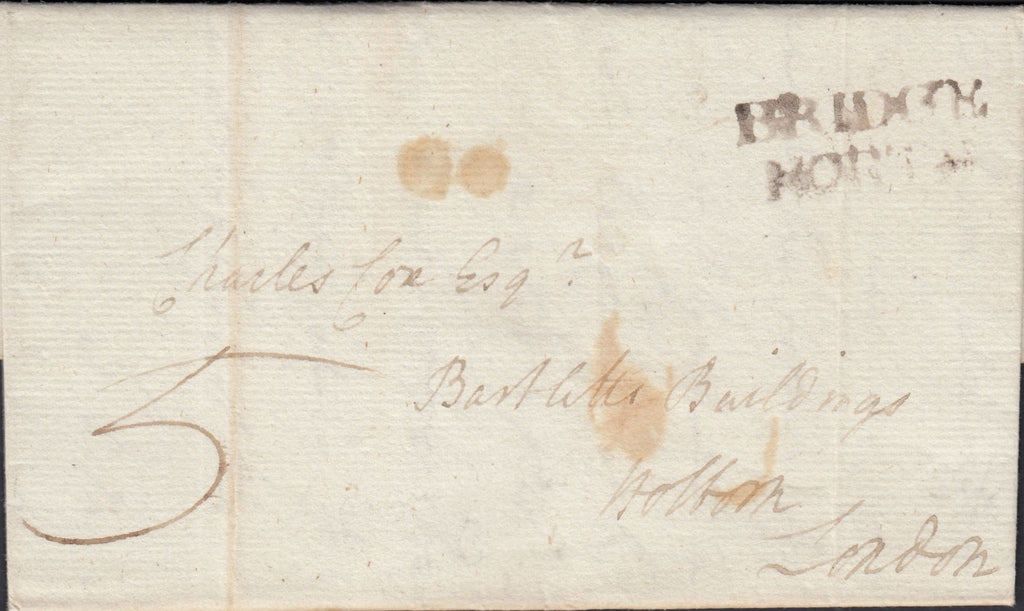 BRIDGE
NORTH
Charles Cox Esqr
5
Bartletts Buildings
Holborn
London